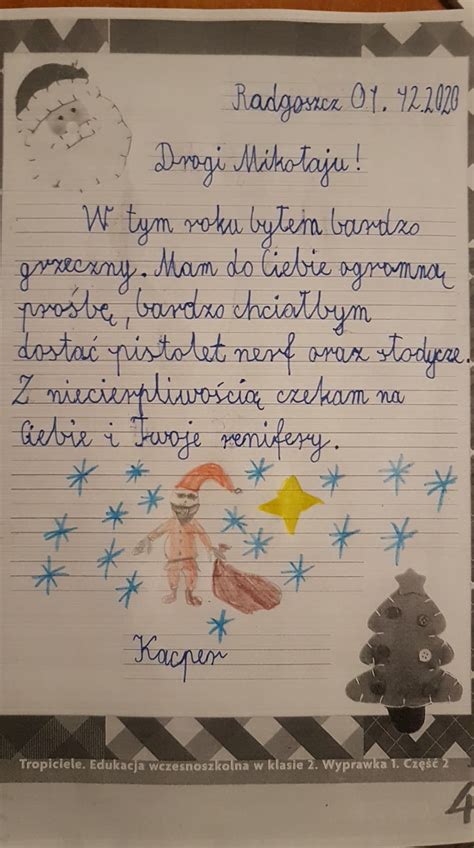 Radgoszcz 01.12.2020
Drogi Mikołaju!
W tym roku byłem bardzo
grzeczny. Mam do Ciebie ogromną
prośbę, bardzo chciałbym
dostać pistolet nerf oraz słodycze.
Z niecierpliwością czekam na
Ciebie i Twoje renifery.
Kacper
Tropiciele. Edukacja wczesnoszkolna w klasie 2. Wyprawka 1. Część 2
4